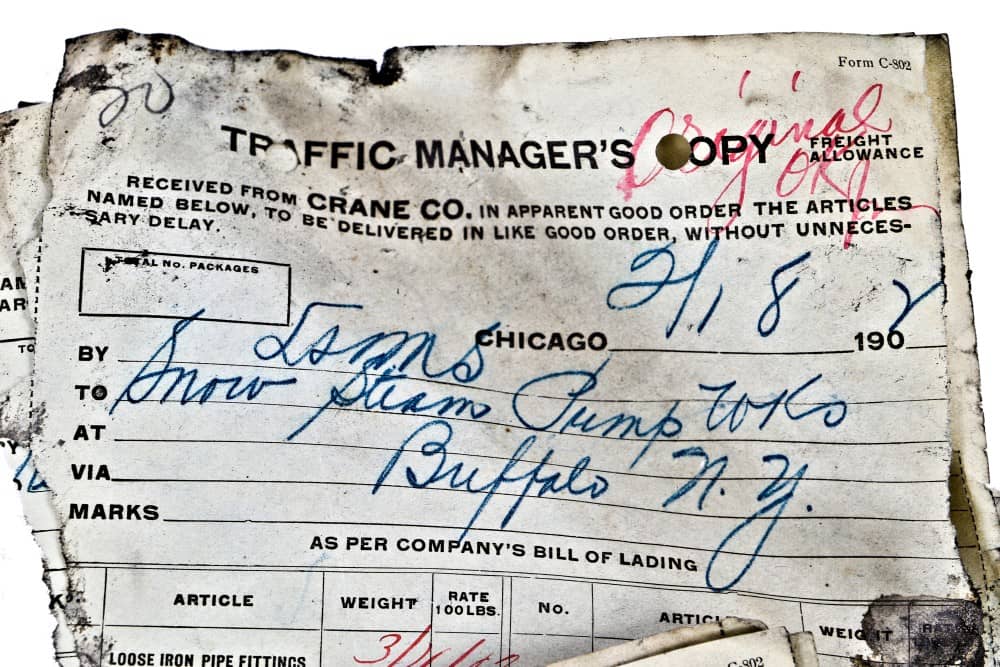 Form C-802
20
Original
TRAFFIC MANAGER'S COPY
FREIGHT
ALLOWANCE
OK
RECEIVED FROM CRANE CO. IN APPARENT GOOD ORDER THE ARTICLES
NAMED BELOW, TO BE DELIVERED IN LIKE GOOD ORDER, WITHOUT UNNECES-
SARY DELAY.
TOTAL No. PACKAGES
CHICAGO 2/18 1902
BY
TO Snow Steam Pump WKs
AT Buffalo N.Y.
VIA
MARKS
AS PER COMPANY'S BILL OF LADING
ARTICLE WEIGHT RATE 100 LBS. No. ARTICL WEIGHT RAT
LOOSE IRON PIPE FITTINGS
C-802